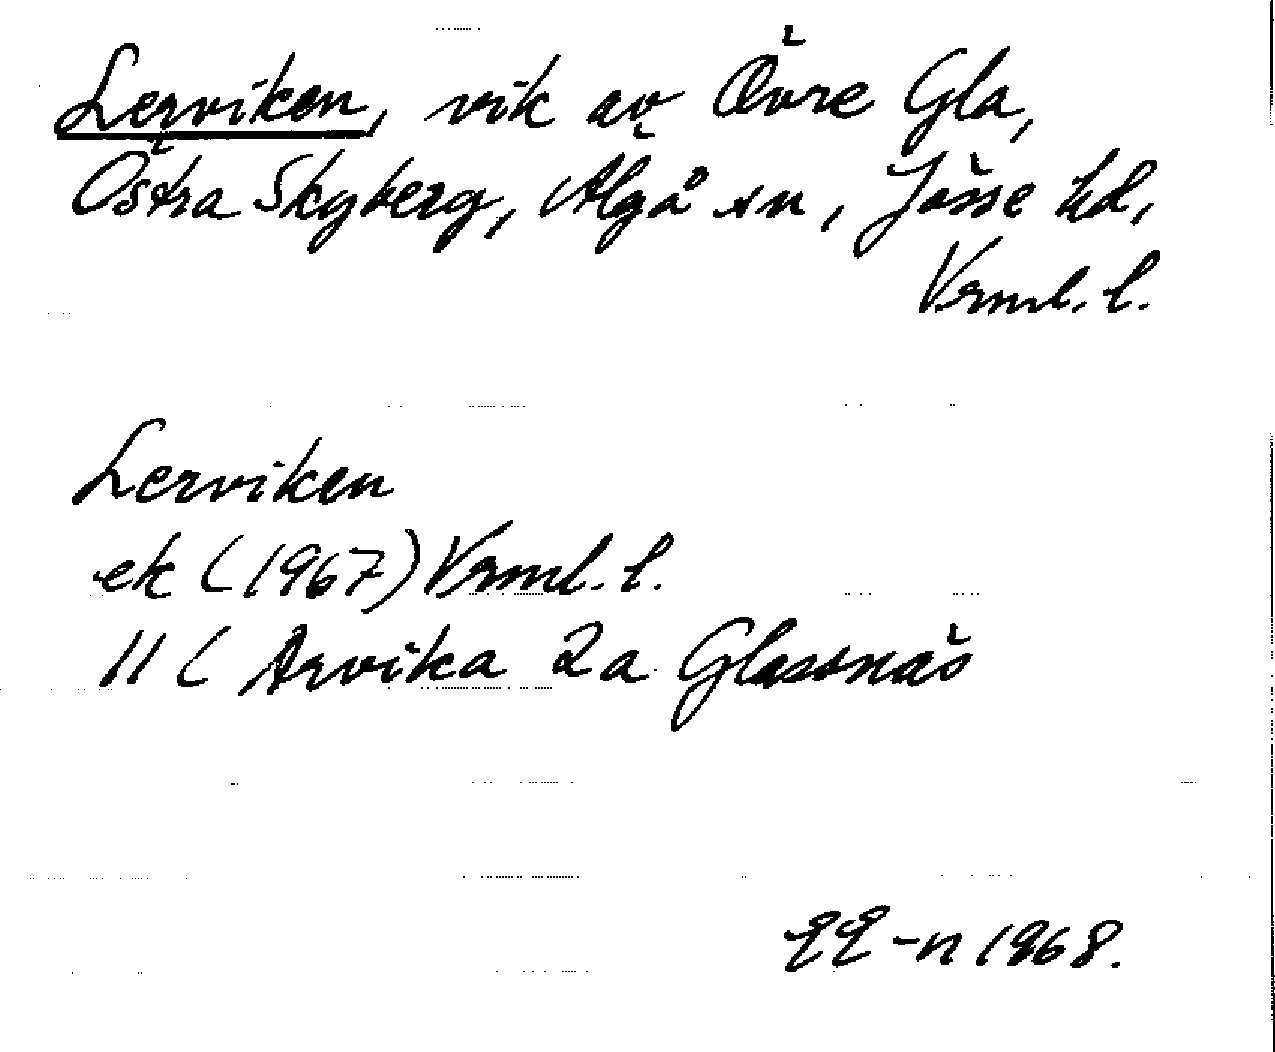 Lerviken, vik av Övre Gla,
Östra Skyberg, Älgå sn, Jösse hd,
Vrml. l.
Lerviken
ek (1967) Vrml. l.
11 C Arvika 2a Glassnäs
EE-n 1968.